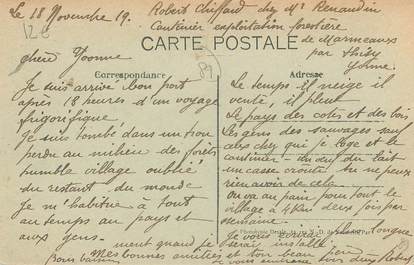 Le 18 Novembre 19.
Robert Chiffard chez Mr Renaudin
Cantinier exploitation forestière
de Marmeaux
par Thisy
Yonne
CARTE POSTALE
Correspondance
Adresse
Chère Yvonne
Je suis arrivé bon port
après 18 heures d'un voyage
frigorifique,
Je suis tombé dans un trou
perdu au milieu des forêts
humble village oublié
du restant du monde
Je m'habitue à tout
au temps au pays et
aux gens.
Le temps il neige il
vente, il pleut
Le pays des cotes et des bois
Les gens des sauvages sauf
ceux chez qui je loge et le
cantinier un œuf du lait
un casse croute tu ne peux
rien avoir de cela
On va au pain pour tout le
village à 4 Km deux fois par
semaine.
Je vous longue
ment quand je serai installé
Mes bonnes amitiés et ton beau père
Bons baisers